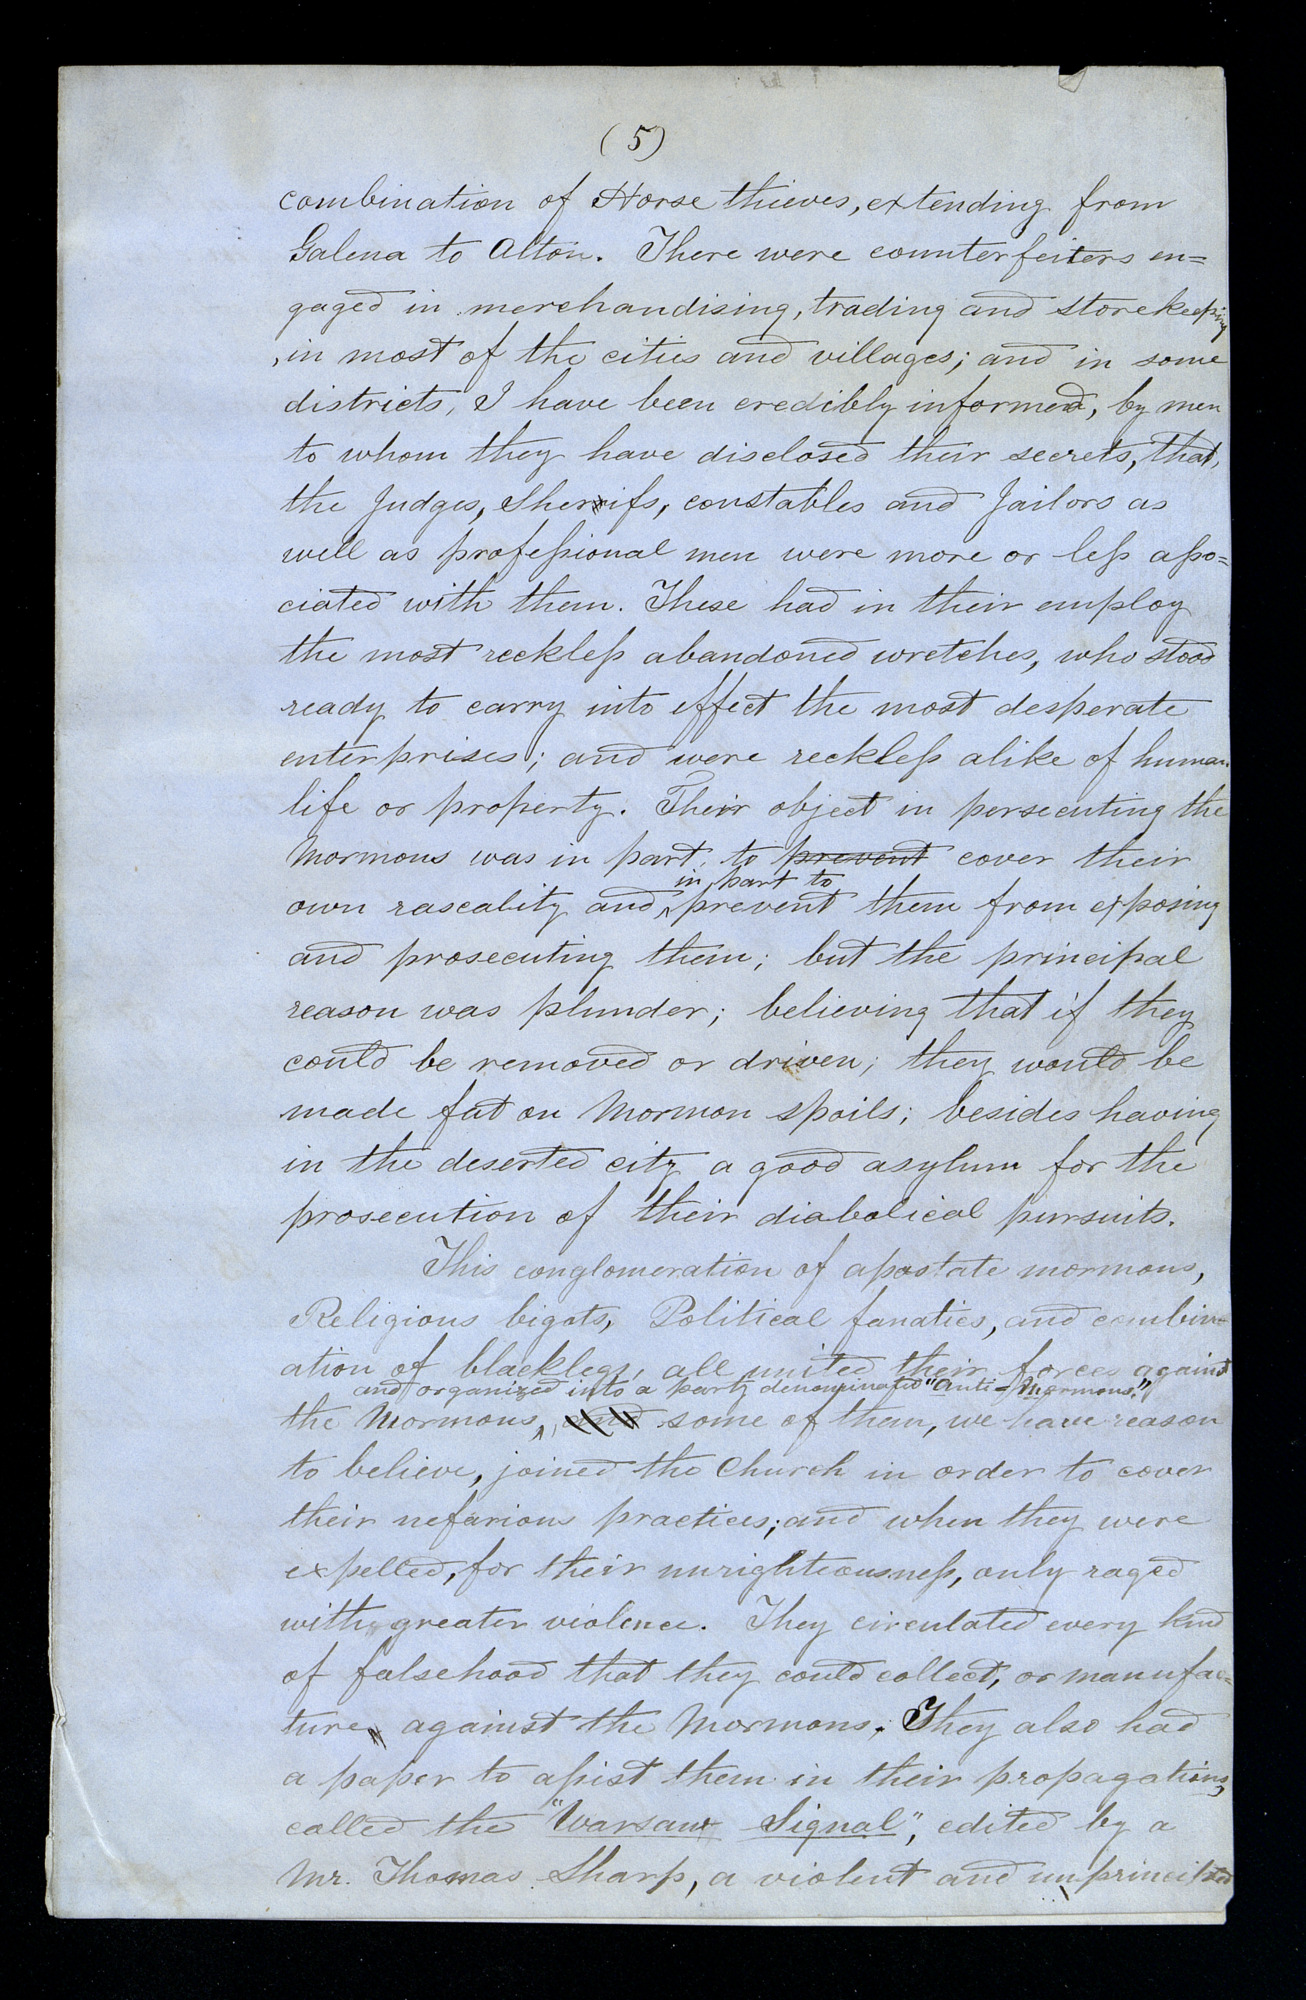 (5)
combination of Horse thieves, extending from
Galena to Alton. There were counterfeiters en=
gaged in merchandising, trading and storekeeping
, in most of the cities and villages; and in some
districts, I have been credibly informed, by men
to whom they have disclosed their secrets, that,
the Judges, Sherifs, constables and Jailors as
well as professional men were more or less asso=
ciated with them. These had in their employ
the most reckless abandoned wretches, who stood
ready to carry into effect the most desperate
enterprises; and were reckless alike of human
life or property. Their object in persecuting the
Mormons was in part, to prevent cover their
in part to
own rascality and prevent them from exposing
and prosecuting them; but the principal
reason was plunder; believing that if they
could be removed or driven; they would be
made fat on Mormon spoils; besides having
in the deserted city a good asylum for the
prosecution of their diabolical pursuits.
This conglomeration of apostate mormons,
Religious bigots, Political fanatics, and combin-
ation of blacklegs, all united their forces against
and organized into a party denominated "Anti-Mormons."
the Mormons, and some of them, we have reason
to believe, joined the Church in order to cover
their nefarious practices; and when they were
expelled, for their unrighteousness, only raged
with greater violence. They circulated every kind
of falsehood that they could collect, or manufac=
ture against the Mormons. They also had
a paper to assist them in their propagations,
called the "Warsaw Signal", edited by a
Mr. Thomas Sharp, a violent and unprincipled